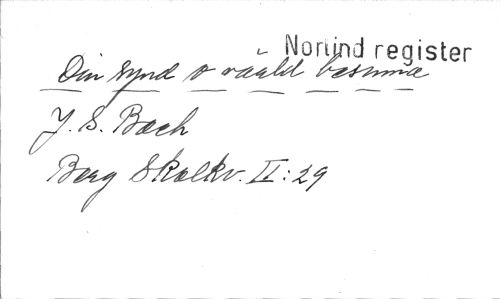 Norlind register
Din synd o värld besinna
J. S. Bach
Berg Skolkv. II:29